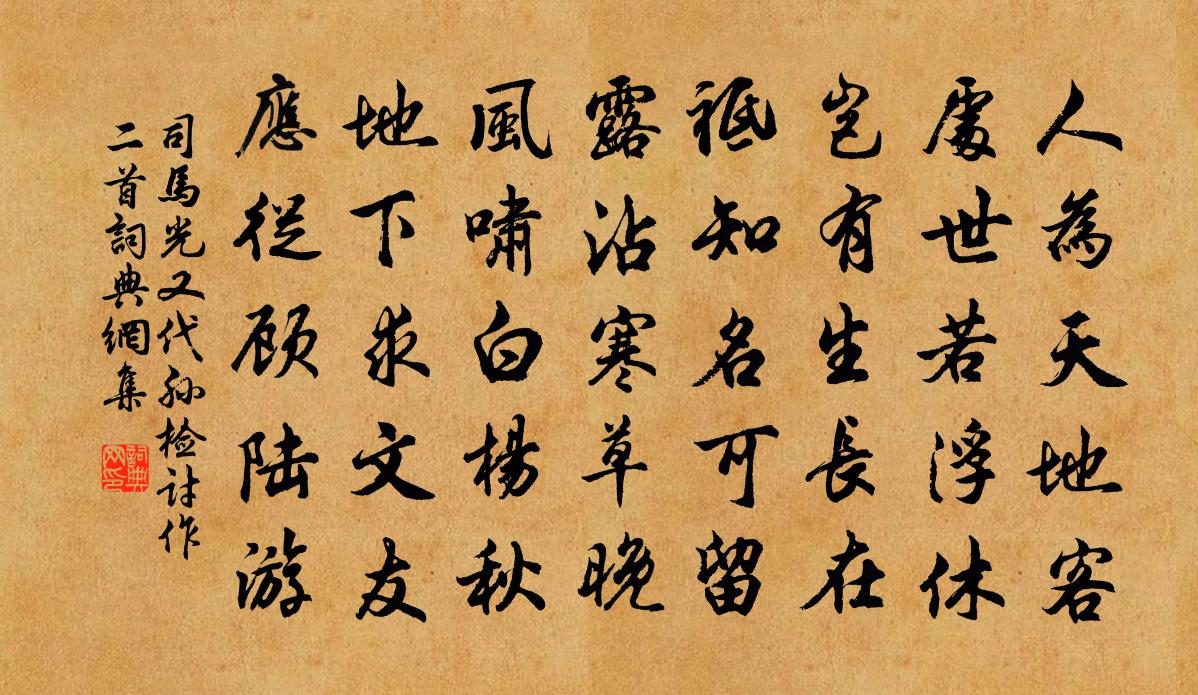 人為天地客
處世若浮休
豈有生長在
祗知名可留
露沾寒草晚
風嘯白楊秋
地下求文友
應從顧陆游
司馬光又代孙檢討作
二首詞典網集
詞典網印